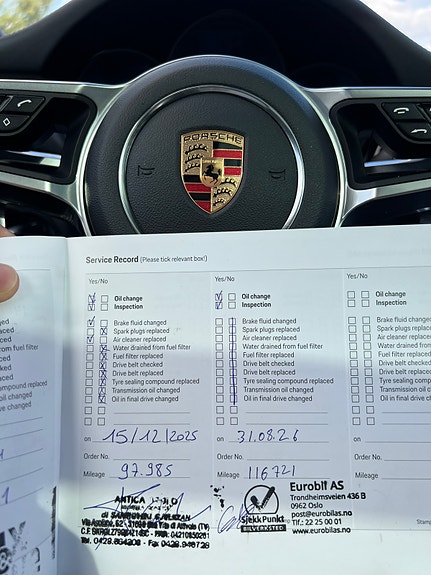 PORSCHE
Service Record (Please tick relevant box!)
Yes/No
Oil change
Inspection
Brake fluid changed
Spark plugs replaced
Air cleaner replaced
Water drained from fuel filter
Fuel filter replaced
Drive belt checked
Drive belt replaced
Tyre sealing compound replaced
Transmission oil changed
Oil in final drive changed
on 15/12/2025
Order No.
Mileage 97.985
ANTICA
di
Yes/No
Oil change
Inspection
Brake fluid changed
Spark plugs replaced
Air cleaner replaced
Water drained from fuel filter
Fuel filter replaced
Drive belt checked
Drive belt replaced
Tyre sealing compound replaced
Transmission oil changed
Oil in final drive changed
on 31.08.26
Order No.
Mileage 116721
Sjekk Punkt
BILVERKSTED
Eurobil AS
Trondheimsveien 436 B
0962 Oslo
post@eurobilas.no
Tlf.: 22 25 00 01
www.eurobilas.no
Yes/No
Oil change
Inspection
Brake fluid changed
Spark plugs replaced
Air cleaner replaced
Water drained from
Fuel filter replaced
Drive belt checked
Drive belt replaced
Tyre sealing compo
Transmission oil cha
Oil in final drive cha
on
Order No.
Mileage